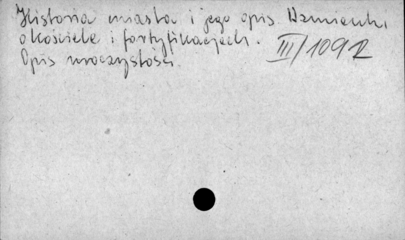 Historia miasta i jego opis. Wzmianki
o kościele i fortyfikacjach.
Opis uroczystości.
III/1092